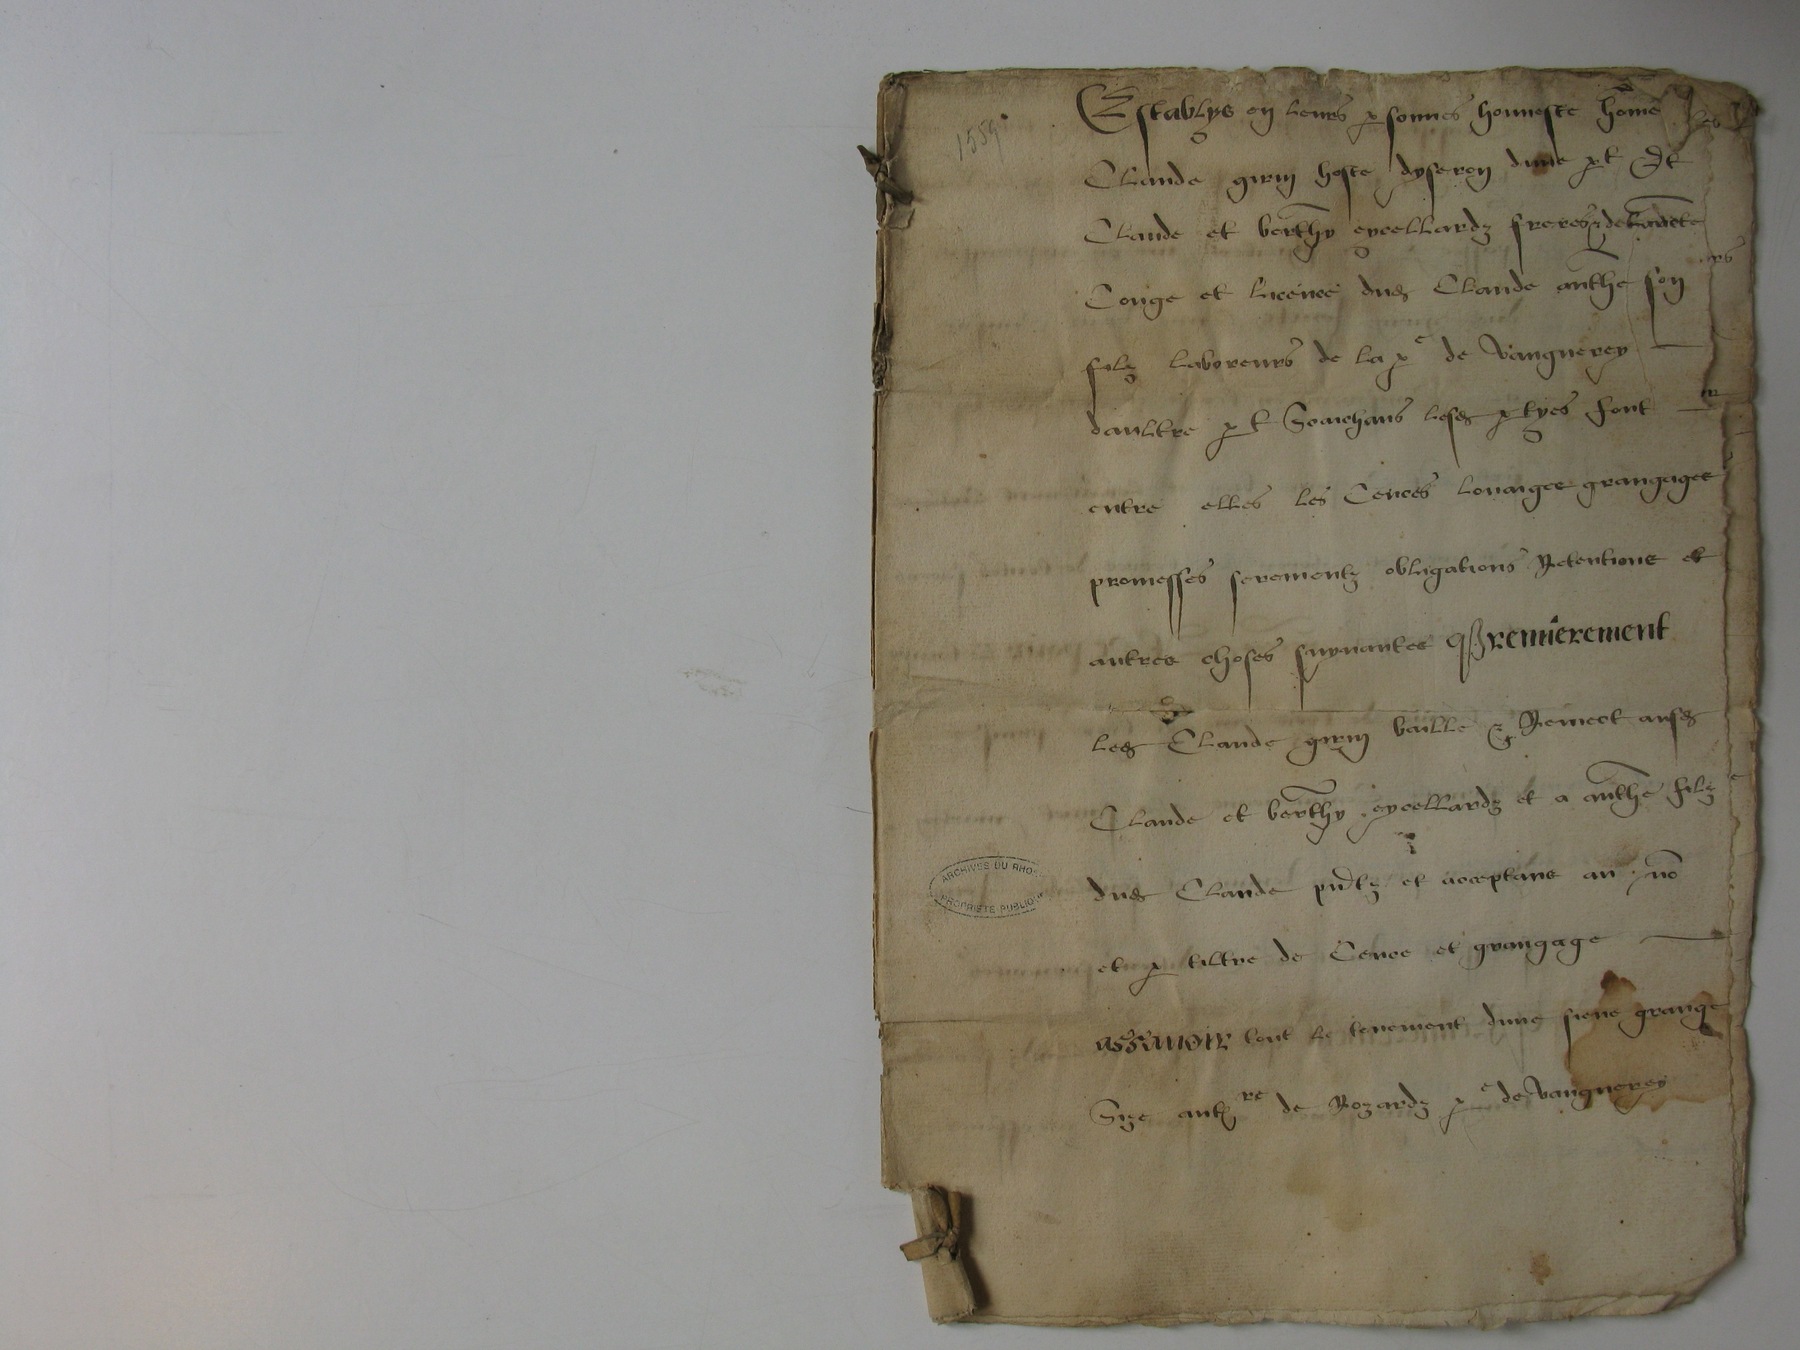 1559
Establys en leurs psonnes honneste home
Claude girin hoste dyseron dune pt Et
Claude et berthy eycellardz freres de
Conge et licence dud Claude anthe son
filz laboreurs de la pe de Vaugnerey
daultre pt Saichans lesd ptyes font
entre elles les Cences louaiges grangages
promesses serementz obligations Retentions et
autres choses suyvantes Premierement
led Claude girin baille & Remect ausd
Claude et berthy eycellardz et a anthe filz
dud Claude pntz et acceptans au no
et p tiltre de Cence et grangage
assavoir tout le tenement dune siene grange
Size de Rozardz pe de Vaugnerey
ARCHIVES DU RHONE
PROPRIETE PUBLIQUE